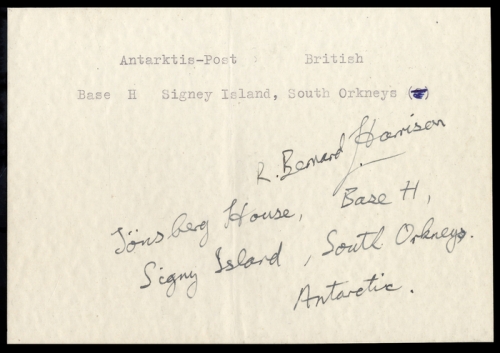 Antarktis-Post British
Base H Signey Island, South Orkneys ( )
R. Bernard Harrison
Jönsberg House, Base H,
Signy Island, South Orkneys.
Antarctic.